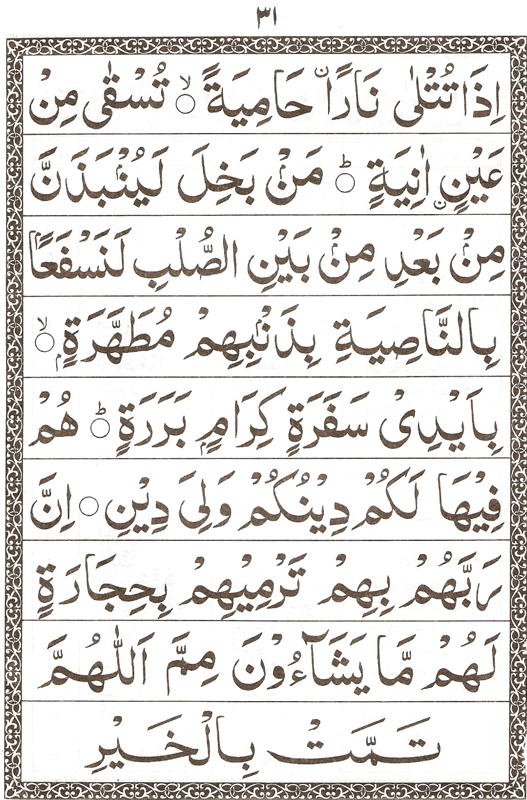 ٣١
اِذَا تُتْلٰى نَارًا حَامِيَةً ۙ تُسْقٰى مِنْ
عَيْنٍ اٰنِيَةٍ ؕ مَنْۢ بَخِلَ لَيُنْۢبَذَنَّ
مِنْۢ بَعْدِ مِنْۢ بَيْنِ الصُّلْبِ لَنَسْفَعًاۢ
بِالنَّاصِيَةِ بِذَنْۢبِهِمْ مُطَهَّرَةٍۭ ۙ
بِاَيْدِىْ سَفَرَةٍ كِرَامٍۭ بَرَرَةٍ ؕ هُمْ
فِيْهَا لَكُمْ دِيْنُكُمْ وَلِىَ دِيْنِ ○ اِنَّ
رَبَّهُمْ بِهِمْ تَرْمِيْهِمْ بِحِجَارَةٍ
لَهُمْ مَّا يَشَآءُوْنَ مِمَّ اَللّٰهُمَّ
تَمَّتْ بِالْخَيْرِ